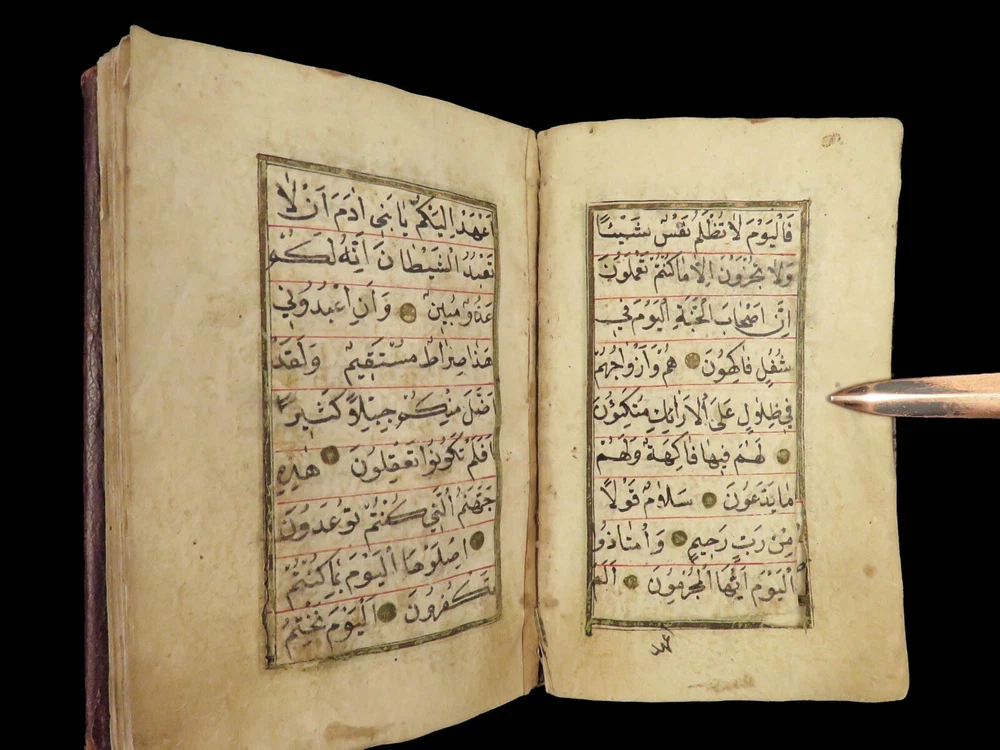 فَالْيَوْمَ لَا تُظْلَمُ نَفْسٌ شَيْئًا
وَلَا تُجْزَوْنَ اِلَّا مَا كُنْتُمْ تَعْمَلُونَ
اِنَّ اَصْحَابَ الْجَنَّةِ الْيَوْمَ فِي
شُغُلٍ فَاكِهُونَ هُمْ وَاَزْوَاجُهُمْ
فِي ظِلَالٍ عَلَى الْاَرَائِكِ مُتَّكِئُونَ
لَهُمْ فِيهَا فَاكِهَةٌ وَلَهُمْ
مَا يَدَّعُونَ سَلَامٌ قَوْلًا
مِنْ رَبٍّ رَحِيمٍ وَامْتَاذُو
الْيَوْمَ اَيُّهَا الْمُجْرِمُونَ اَلَمْ
اَعْهَدْ اِلَيْكُمْ يَا بَنِي اٰدَمَ اَنْ لَا
تَعْبُدُ الشَّيْطَانَ اِنَّهُ لَكُمْ
عَدُوٌّ مُبِينٌ وَاَنِ اعْبُدُونِي
هَذَا صِرَاطٌ مُسْتَقِيمٌ وَلَقَدْ
اَضَلَّ مِنْكُمْ جِبِلًّا كَثِيرًا
اَفَلَمْ تَكُونُوا تَعْقِلُونَ هَذِهِ
جَهَنَّمُ الَّتِي كُنْتُمْ تُوعَدُونَ
اِصْلَوْهَا الْيَوْمَ بِمَا كُنْتُمْ
تَكْفُرُونَ اَلْيَوْمَ نَخْتِمُ